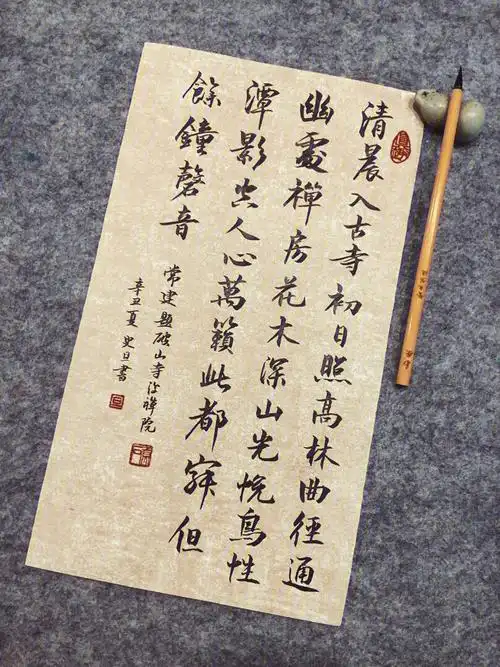 清晨入古寺初日照高林曲徑通
幽處禪房花木深山光悅鳥性
潭影空人心萬籟此都寂但
餘鐘磬音
常建題破山寺後禪院
辛丑夏史旦書